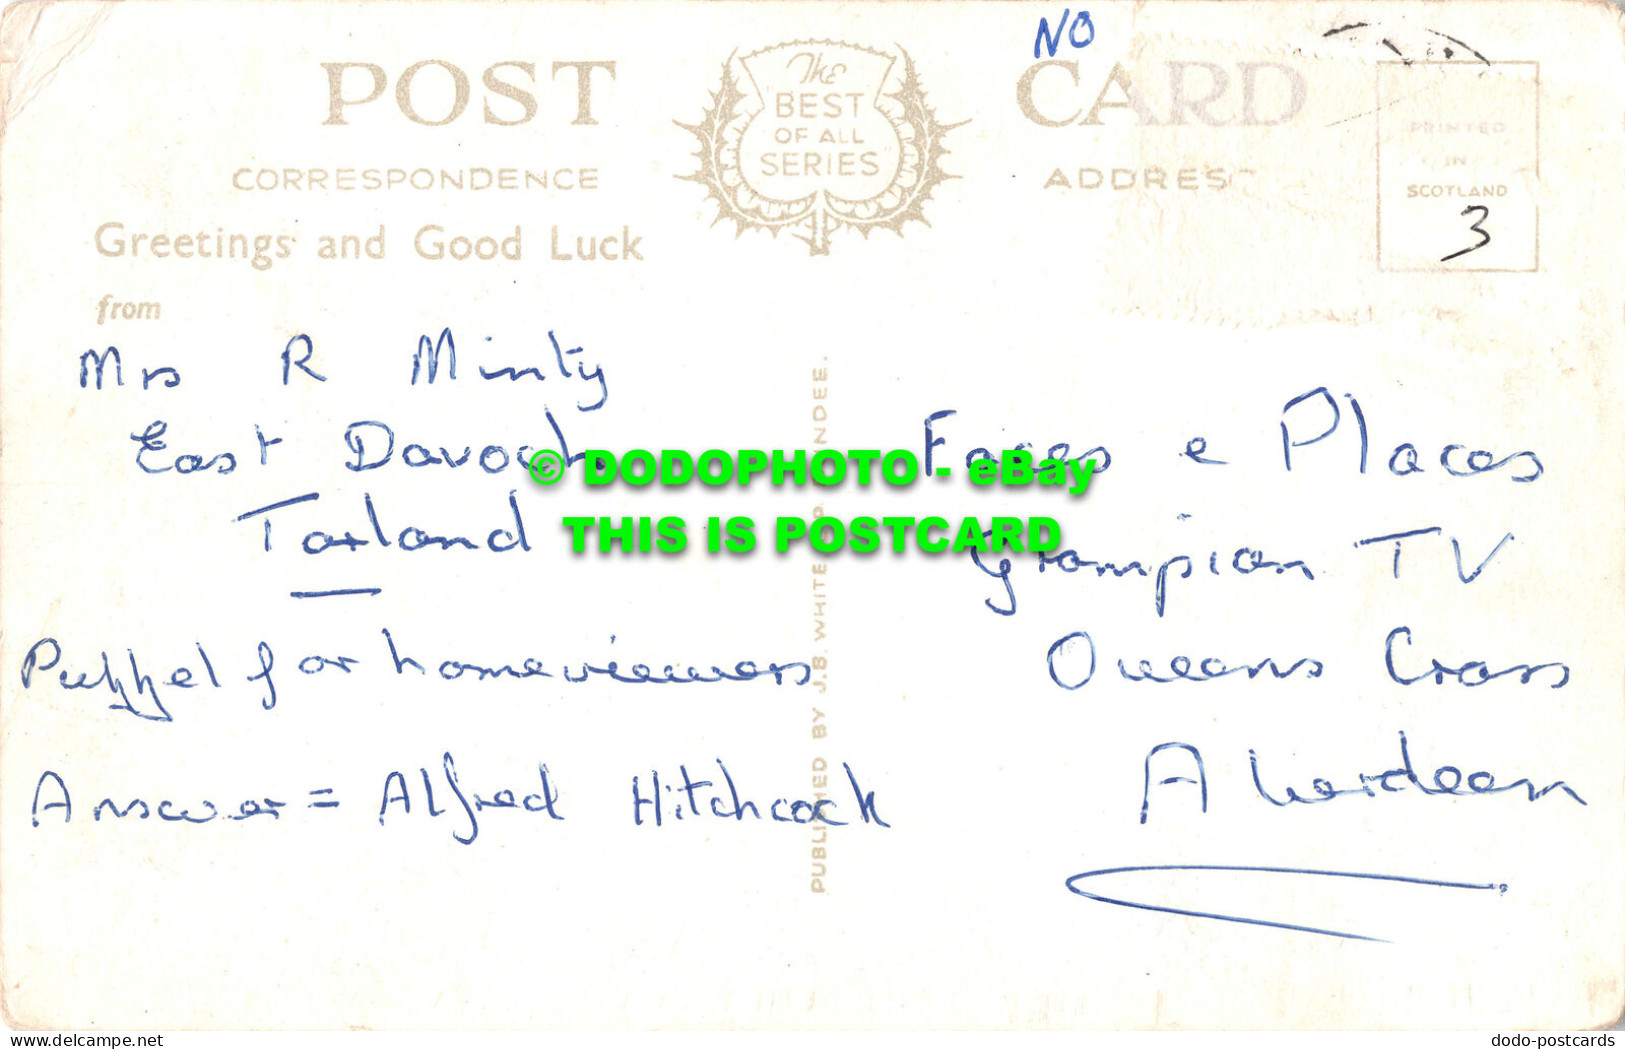 NO
POST CARD
The
"BEST
OF ALL
SERIES"
CORRESPONDENCE
ADDRESS
PRINTED
IN
SCOTLAND
3
Greetings and Good Luck
from
Mrs R Minty
East Davoch
Tarland
Puzzel for homeviewers
Answer = Alfred Hitchcock
PUBLISHED BY J.B. WHITE NDEE.
Faces & Places
Grampian TV
Queens Cross
Aberdeen
© DODOPHOTO - eBay
THIS IS POSTCARD
www.delcampe.net
dodo-postcards